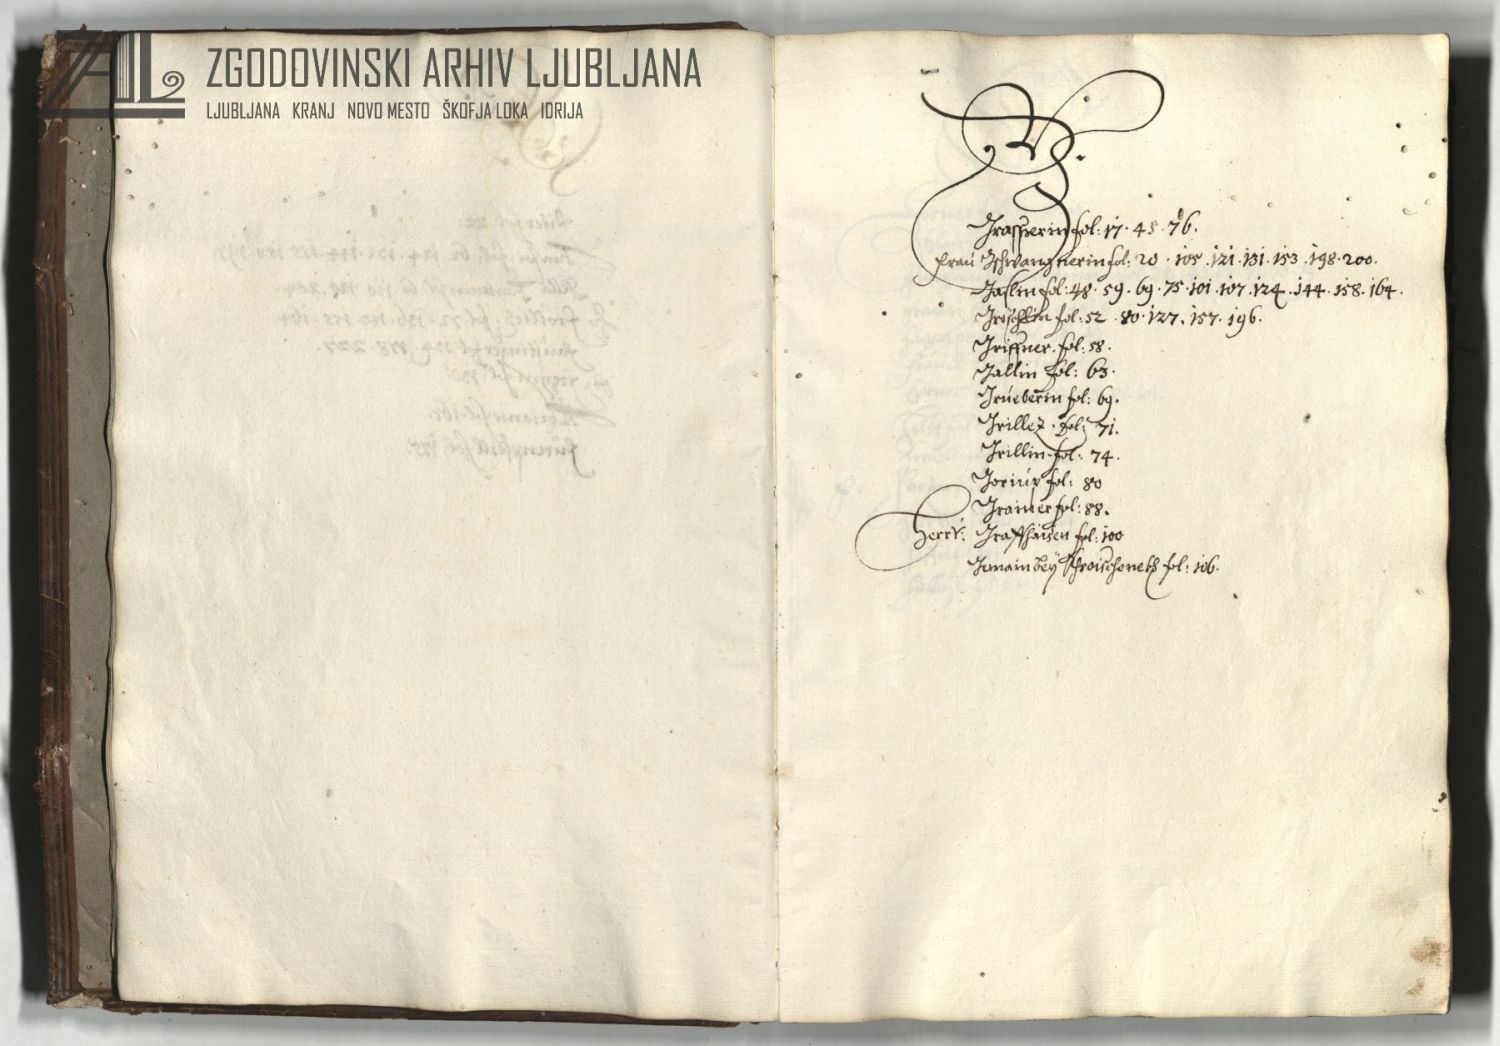 ZGODOVINSKI ARHIV LJUBLJANA
LJUBLJANA KRANJ NOVO MESTO ŠKOFJA LOKA IDRIJA
G
fol: 17 · 45 · 76.
Frau Gschwangnerin fol: 20 · 105 · 121 · 131 · 153 · 198 · 200.
fol: 48 · 59 · 69 · 75 · 101 · 107 · 124 · 144 · 158 · 164.
fol: 52 · 80 · 127 · 157 · 196.
Griffner fol: 58.
Gallin fol: 63.
Grueberin fol: 69.
Grillez fol: 71.
Grillin fol: 74.
Goriup fol: 80
Grainer fol: 88.
Herr: fol: 100
Gmain bey fol: 106.